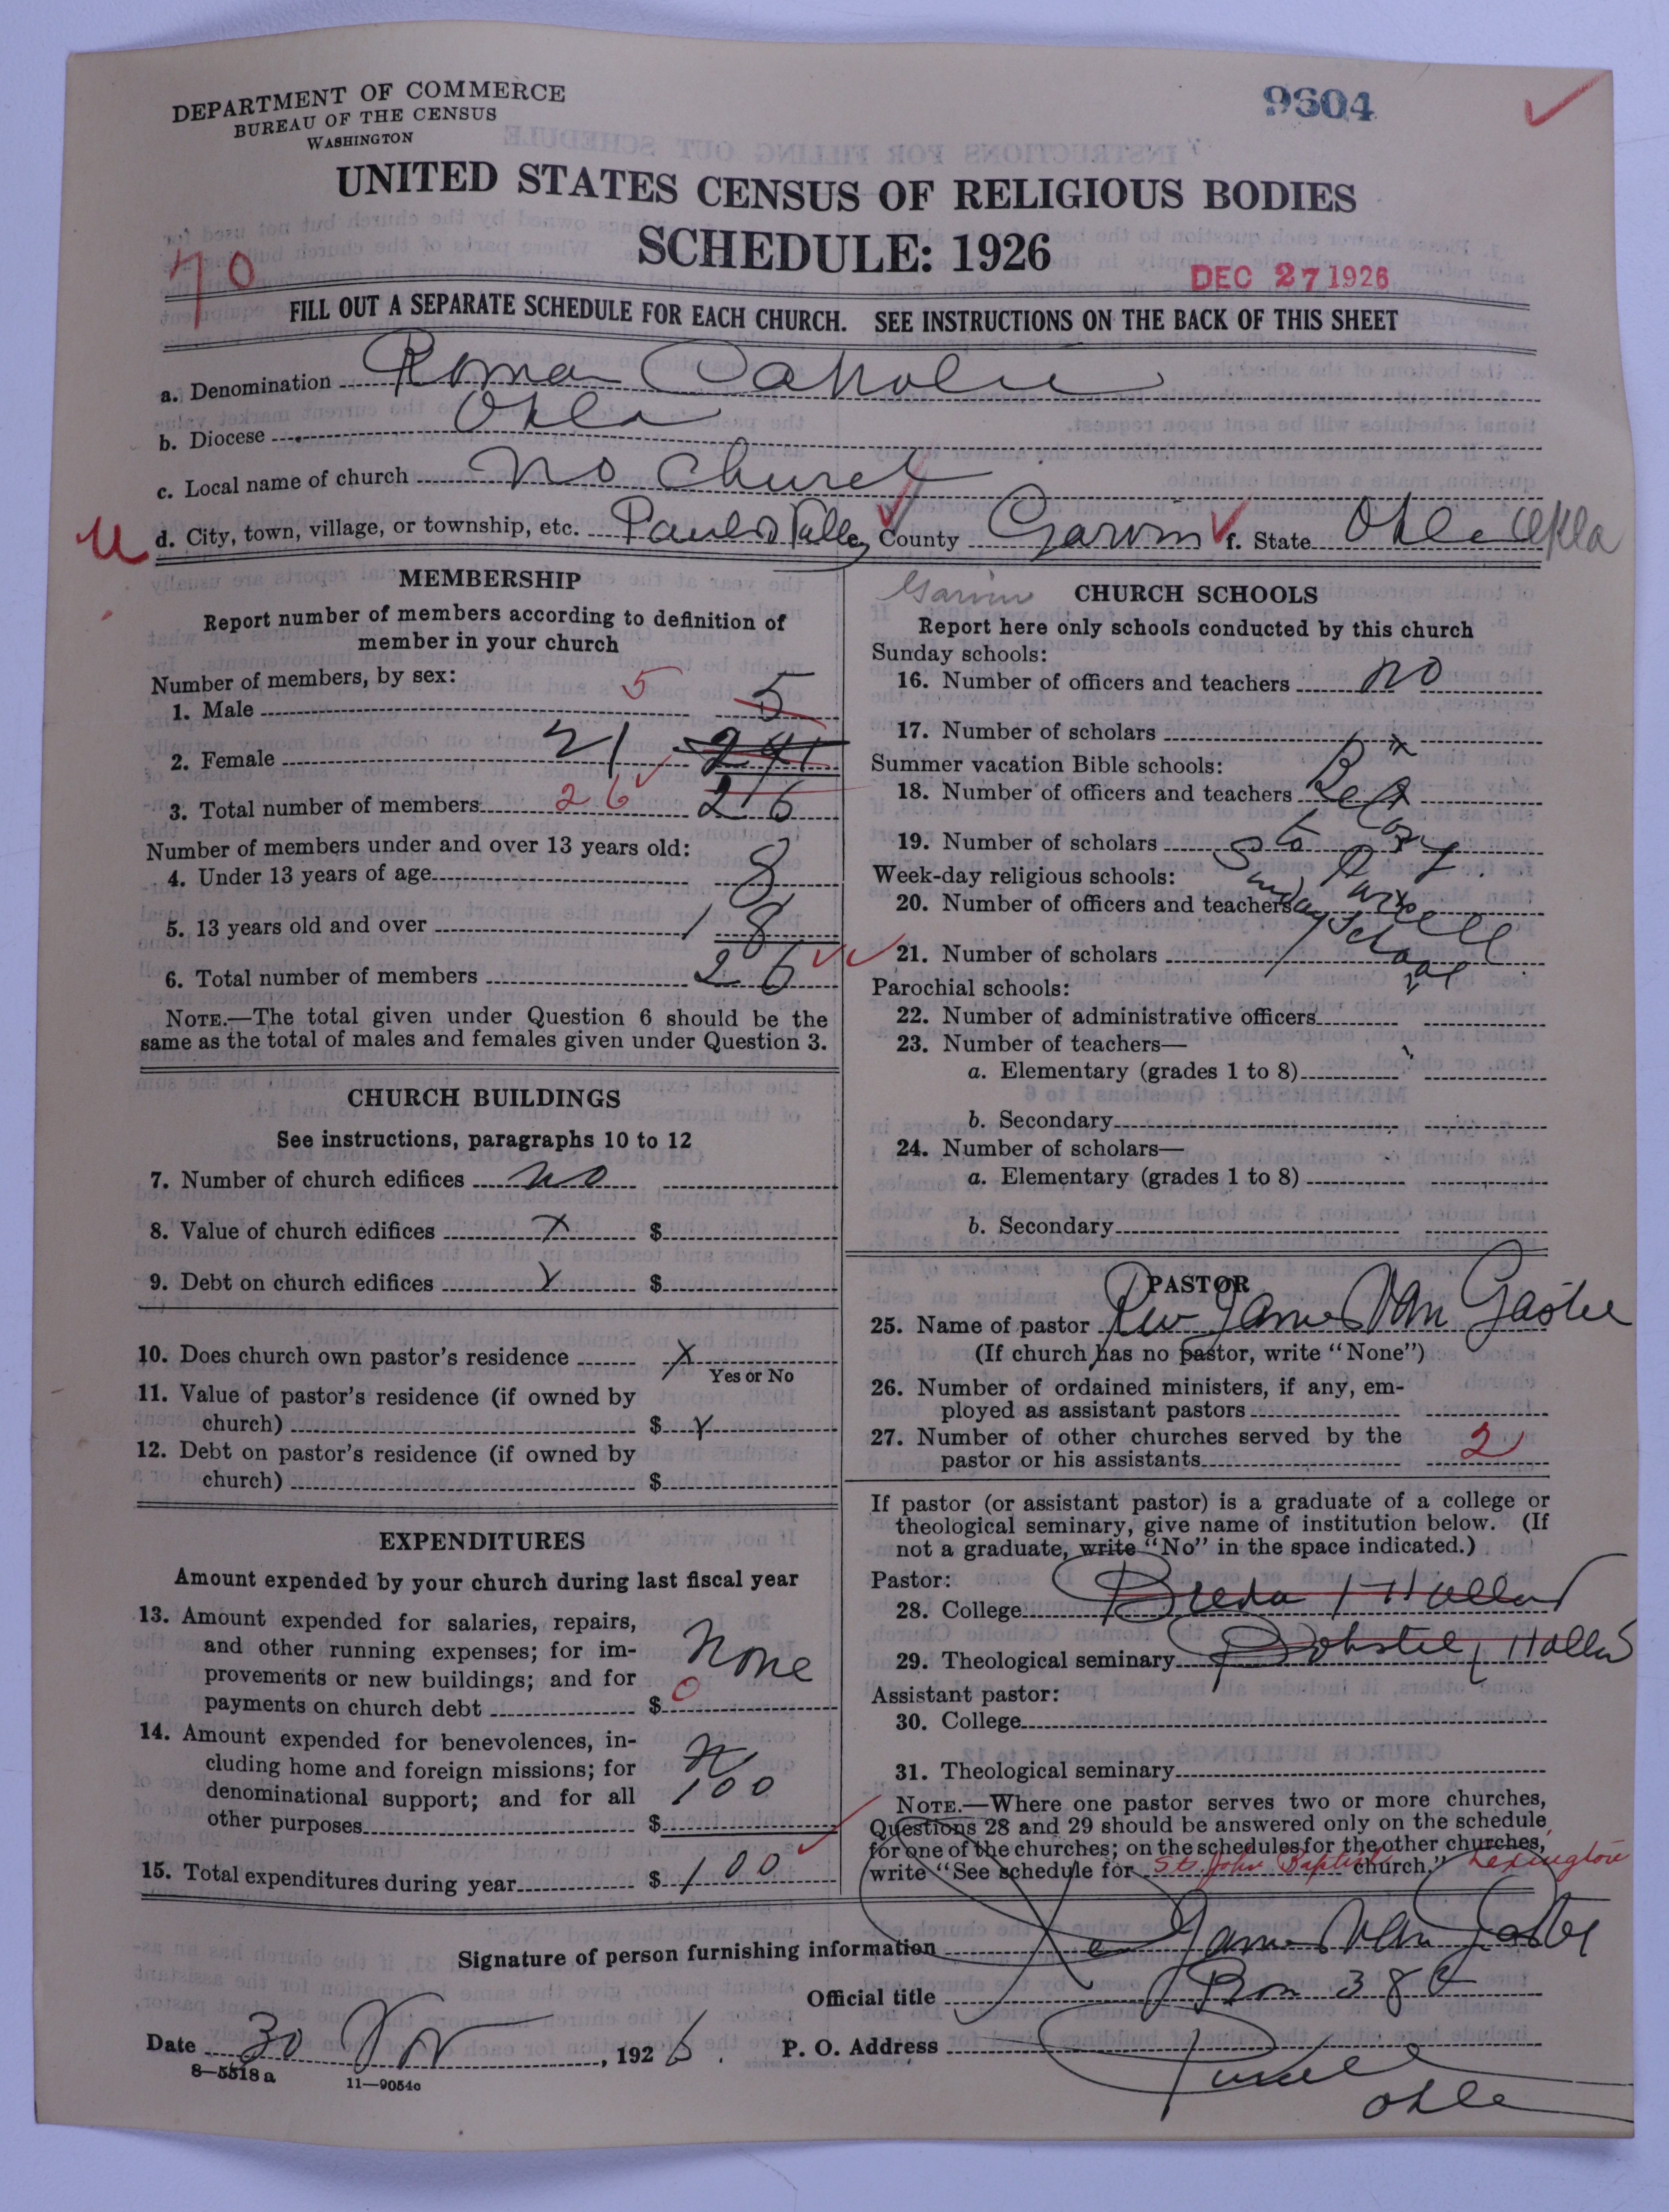 DEPARTMENT OF COMMERCE
BUREAU OF THE CENSUS
WASHINGTON
9604
UNITED STATES CENSUS OF RELIGIOUS BODIES
SCHEDULE: 1926
70
DEC 27 1926
FILL OUT A SEPARATE SCHEDULE FOR EACH CHURCH. SEE INSTRUCTIONS ON THE BACK OF THIS SHEET
a. Denomination Roman Catholic
b. Diocese Okla
c. Local name of church No Church
U d. City, town, village, or township, etc. Pauls Valley County Garvin f. State Okla Okla
MEMBERSHIP
Report number of members according to definition of
member in your church
Number of members, by sex:
1. Male 5 5
2. Female 21 241
3. Total number of members 26 26
Number of members under and over 13 years old:
4. Under 13 years of age 8
5. 13 years old and over 18
6. Total number of members 26
NOTE.—The total given under Question 6 should be the
same as the total of males and females given under Question 3.
CHURCH BUILDINGS
See instructions, paragraphs 10 to 12
7. Number of church edifices no
8. Value of church edifices x $
9. Debt on church edifices x $
10. Does church own pastor's residence x
Yes or No
11. Value of pastor's residence (if owned by
church) $ x
12. Debt on pastor's residence (if owned by
church) $
EXPENDITURES
Amount expended by your church during last fiscal year
13. Amount expended for salaries, repairs,
and other running expenses; for im-
provements or new buildings; and for
payments on church debt $ 0 None
14. Amount expended for benevolences, in-
cluding home and foreign missions; for
denominational support; and for all
other purposes $ 100
15. Total expenditures during year $ 100
Garvin
CHURCH SCHOOLS
Report here only schools conducted by this church
Sunday schools:
16. Number of officers and teachers no
17. Number of scholars x
Summer vacation Bible schools:
18. Number of officers and teachers
19. Number of scholars
Week-day religious schools:
20. Number of officers and teachers
21. Number of scholars
Sunday School
Parochial schools:
22. Number of administrative officers
23. Number of teachers—
a. Elementary (grades 1 to 8)
b. Secondary
24. Number of scholars—
a. Elementary (grades 1 to 8)
b. Secondary
PASTOR
25. Name of pastor Rev James Van Gastel
(If church has no pastor, write "None")
26. Number of ordained ministers, if any, em-
ployed as assistant pastors
27. Number of other churches served by the
pastor or his assistants 2
If pastor (or assistant pastor) is a graduate of a college or
theological seminary, give name of institution below. (If
not a graduate, write "No" in the space indicated.)
Pastor:
28. College Breda Holland
29. Theological seminary Holland
Assistant pastor:
30. College
31. Theological seminary
NOTE.—Where one pastor serves two or more churches,
Questions 28 and 29 should be answered only on the schedule
for one of the churches; on the schedules for the other churches,
write "See schedule for St. John Baptist church." Lexington
Signature of person furnishing information James Van Gastel
Official title Box 386
Date 30 Nov, 1926. P. O. Address Purcell
Okla
8—5518a 11—9054c